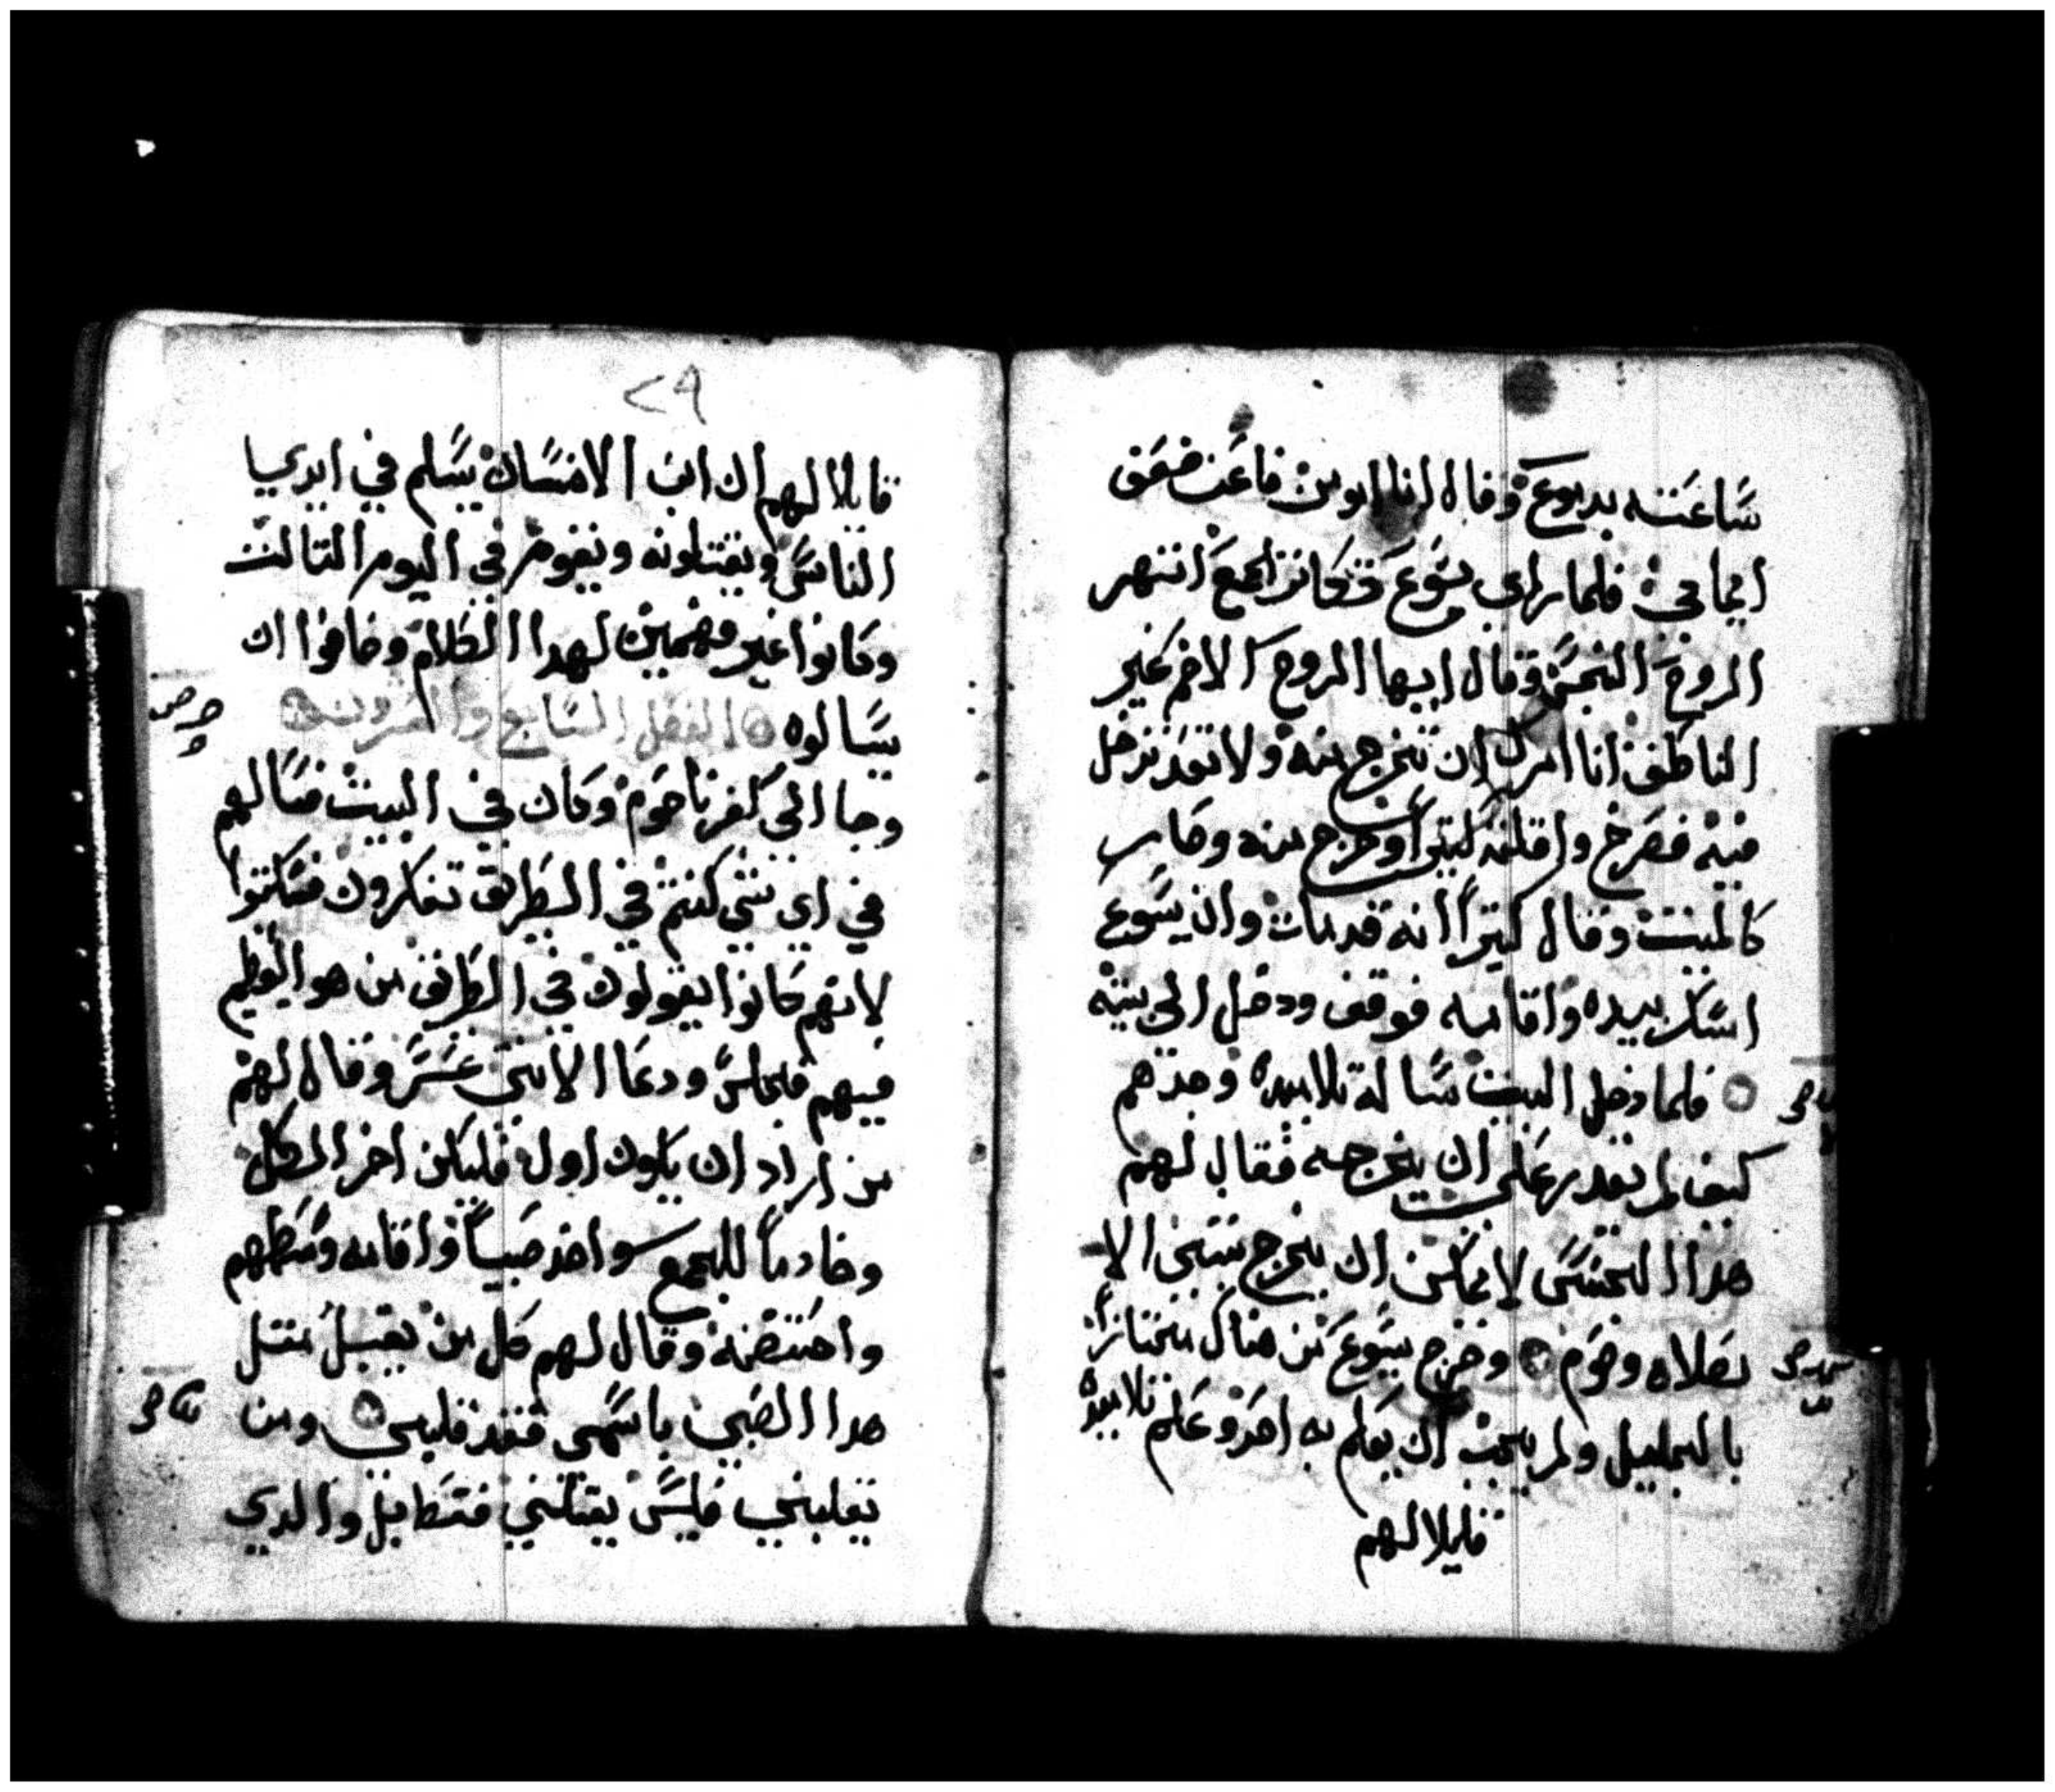 ساعته بدموع وقال انا اومن فاعن ضعف
ايماني فلما راي يسوع تكاثر الجمع انتهر
الروح النجس وقال ايها الروح الاخرس غير
الناطق انا امرك ان تخرج منه ولا تعد تدخل
فيه فصرخ واقلقه كثيرا وخرج منه وصار
كالميت وقال كتيراً انه قد مات وان يسوع
امسك بيده واقامه فوقف ودخل الي بيته
فلما دخل البيت ساله تلاميده وحدهم
كيف لم نقدر على ان نخرجه فقال لهم
هدا الجنس لا يمكن ان يخرج بشي الا
بصلاه وصوم وخرج يسوع من هناك مجتازاً
بالجليل ولم يحب ان يعلم به احد وعلم تلاميده
قايلا لهم
٢٩
قايلا لهم ان ابن الانسان يسلم في ايدي
الناس ويقتلونه ويقوم في اليوم التالت
وكانوا غير فهمين لهدا الكلام وخافوا ان
يسالوه الفصل السابع والعشرون
وجا الى كفرناحوم وكان في البيت فسالهم
في اي شي كنتم في الطريق تفكرون فسكتوا
لانهم كانوا يقولون في الطريق من هو العظيم
فيهم فجلس ودعا الاتني عشر وقال لهم
من اراد ان يكون اول فليكن اخر الكل
وخادماً للجميع واخد صبياً واقامه وسطهم
واحتضنه وقال لهم كل من يقبل متل
هدا الصبي باسمي فقد قبلني ومن
يقبلني فليس يقبلني فقط بل والدي